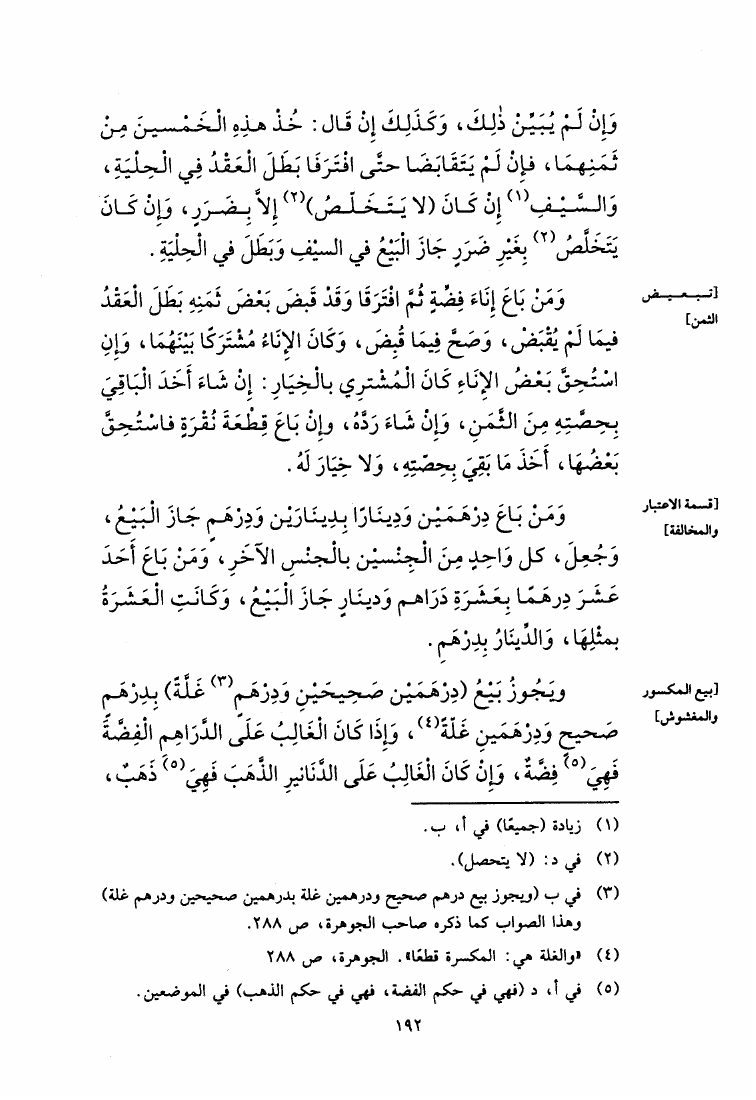 وَإِنْ لَمْ يُبَيِّنْ ذٰلِكَ، وَكَذَلِكَ إِنْ قَال: خُذْ هذِهِ الْخَمْسينَ مِنْ
ثَمَنِهِمَا، فإِنْ لَمْ يَتَقَابَضَا حتَّى افْتَرَقَا بَطَلَ الْعَقْدُ فِي الْحِلْيَةِ،
وَالسَّيْفِ(١) إِنْ كَانَ (لا يَتَخَلَّصُ)(٢) إلاَّ بِضَرَرٍ، وَإِنْ كَانَ
يَتَخَلَّصُ(٢) بِغَيْرِ ضَرَرٍ جَازَ الْبَيْعُ في السيْفِ وَبَطَلَ في الْحِلْيَةِ.
[تبعيض
الثمن]
وَمَنْ بَاعَ إِنَاءَ فِضَّةٍ ثُمَّ افْتَرَقَا وَقَدْ قَبضَ بَعْضَ ثَمَنِهِ بَطَلَ الْعَقْدُ
فيمَا لَمْ يُقْبَضْ، وَصَحَّ فِيمَا قُبِضَ، وَكَانَ الإِنَاءُ مُشْتَرَكًا بَيْنَهُمَا، وَإِنِ
اسْتُحِقَّ بَعْضُ الإِنَاءِ كَانَ الْمُشْتَرِي بالْخِيَارِ: إِنْ شَاءَ أَخَذَ الْبَاقِيَ
بِحِصَّتِهِ مِنَ الثَّمَنِ، وَإِنْ شَاءَ رَدَّهُ، وإِنْ بَاعَ قِطْعَةَ نُقْرَةٍ فاسْتُحِقَّ
بَعْضُهَا، أَخَذَ مَا بَقِيَ بِحِصّتِهِ، وَلا خِيَارَ لَهُ.
[قسمة الاعتبار
والمخالفة]
وَمَنْ بَاعَ دِرْهَمَيْنِ وَدِينَارًا بِدِينَارَيْنِ وَدِرْهَمٍ جَازَ الْبَيْعُ،
وَجُعِلَ، كل وَاحِدٍ مِنَ الْجِنْسيْنِ بالْجِنْسِ الآخَرِ، وَمَنْ بَاعَ أَحَدَ
عَشَرَ دِرهَمًا بِعَشَرَةِ دَرَاهِم وَدينَارٍ جَازَ الْبَيْعُ، وَكَانَتِ الْعَشَرَةُ
بمثْلِهَا، وَالدِّينَارُ بِدِرْهَمٍ.
[بيع المكسور
والمغشوش]
ويَجُوزُ بَيْعُ (دِرْهَمَيْنِ صَحِيحَيْنِ وَدِرْهَم(٣) غَلَّةً) بِدِرْهَمٍ
صَحيحٍ وَدِرْهَمَينِ غَلّةً(٤)، وَإِذَا كَانَ الْغَالِبُ عَلَى الدَّرَاهِمِ الْفِضَّةَ
فَهِيَ(٥) فِضَّةٌ، وَإِنْ كَانَ الْغَالِبُ عَلَى الدَّنَانيرِ الذَّهَبَ فَهِيَ(٥) ذَهَبٌ،
(١) زيادة (جميعًا) في أ، ب.
(٢) في د: (لا يتحصل).
(٣) في ب (ويجوز بيع درهم صحيح ودرهمين غلة بدرهمين صحيحين ودرهم غلة)
وهذا الصواب كما ذكره صاحب الجوهرة، ص ٢٨٨.
(٤) «والغلة هي: المكسرة قطعًا». الجوهرة، ص ٢٨٨
(٥) في أ، د (فهي في حكم الفضة، فهي في حكم الذهب) في الموضعين.
١٩٢